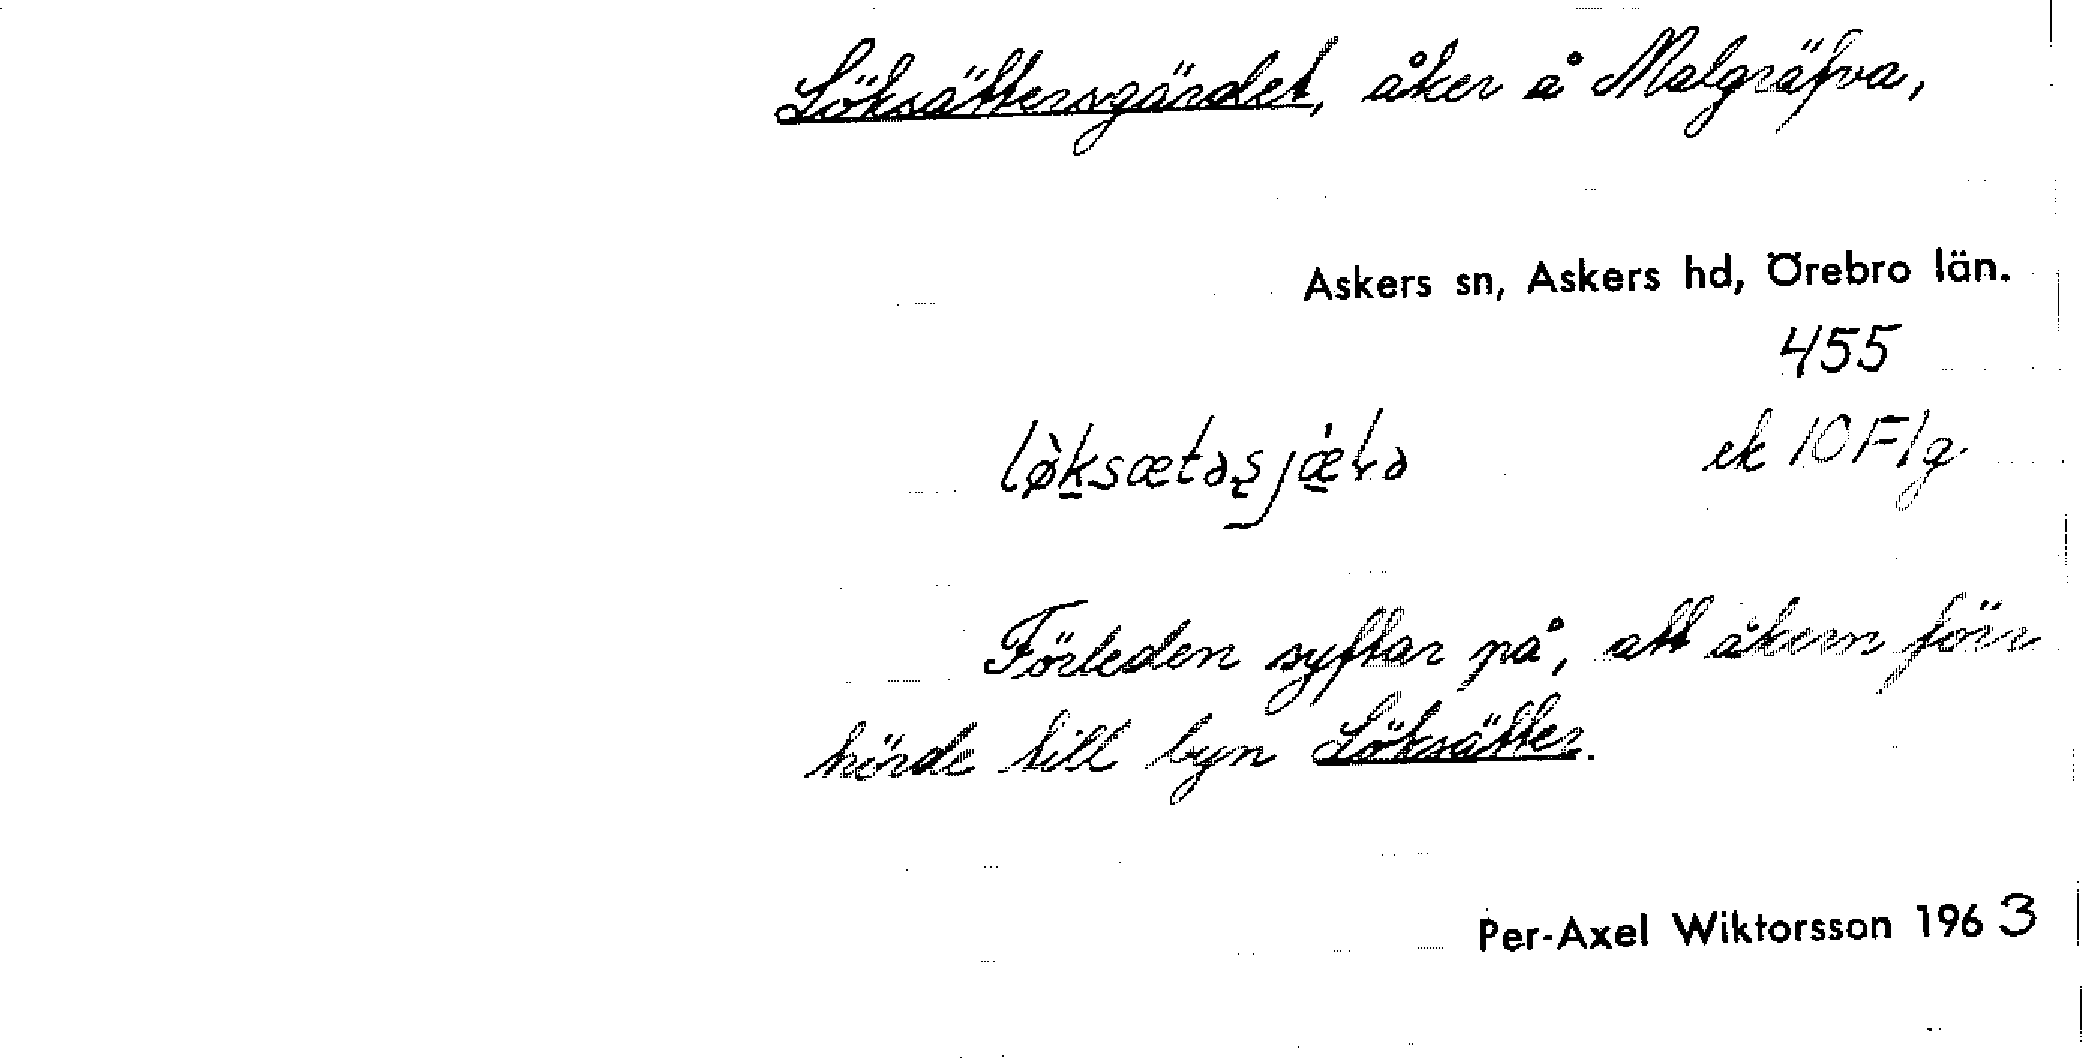 Löksättersgärdet, åker å Malgräfva,
Askers sn, Askers hd, Örebro län.
455
ek 10F1g
Förleden syftar på, att åkern förr
hörde till byn Löksätter.
Per-Axel Wiktorsson 1963